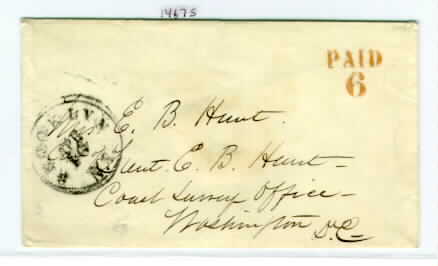 14675
PAID
6
BROOKLYN
N.Y.
Mrs E. B. Hunt.
Lieut. E. B. Hunt -
Coast Survey Office -
Washington D.C.